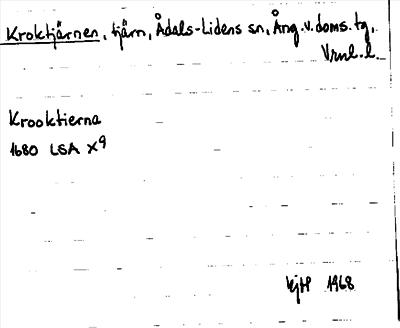 Kroktjärnen, tjärn, Ådals-Lidens sn, Ång.v.doms.tg,
Vrnl.l.
Krooktierna
1680 LSA X9
1968